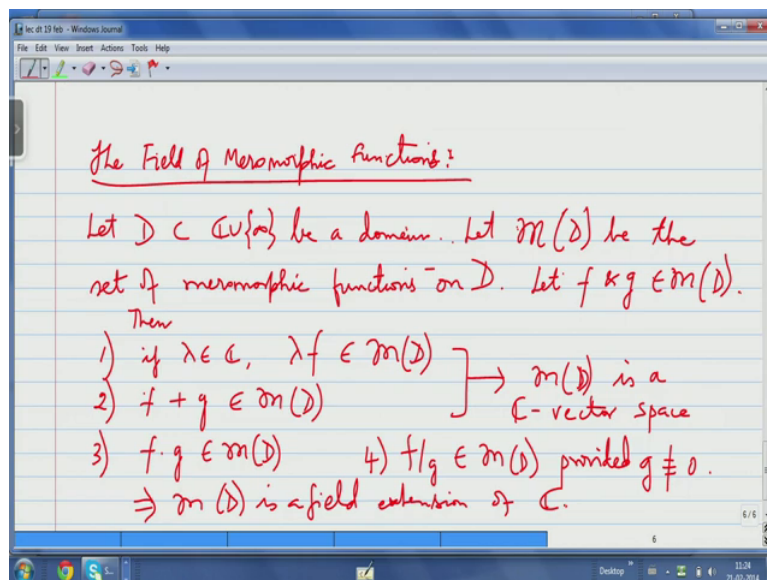 lec dt 19 feb - Windows Journal
File Edit View Insert Actions Tools Help
The Field of Meromorphic Functions:
Let D ⊂ ℂ∪{∞} be a domain. Let m(D) be the
set of meromorphic functions on D. Let f & g ∈ m(D).
Then
1) if λ ∈ ℂ, λf ∈ m(D)
2) f + g ∈ m(D)
→ m(D) is a
ℂ-vector space
3) f.g ∈ m(D) 4) f/g ∈ m(D) provided g ≢ 0.
⇒ m(D) is a field extension of ℂ.
6/6
6
S...
Desktop 11:24
21-02-2014